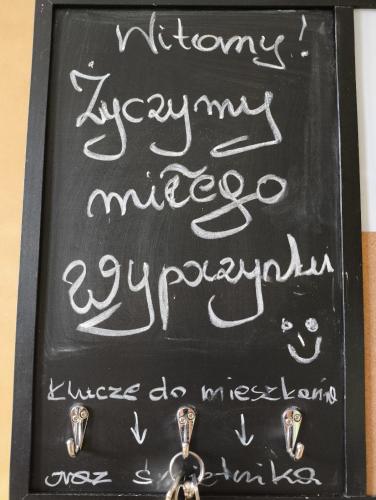 Witamy!
Życzymy
miłego
wypoczynku
Klucze do mieszkania
↓ ↓
oraz śmietnika